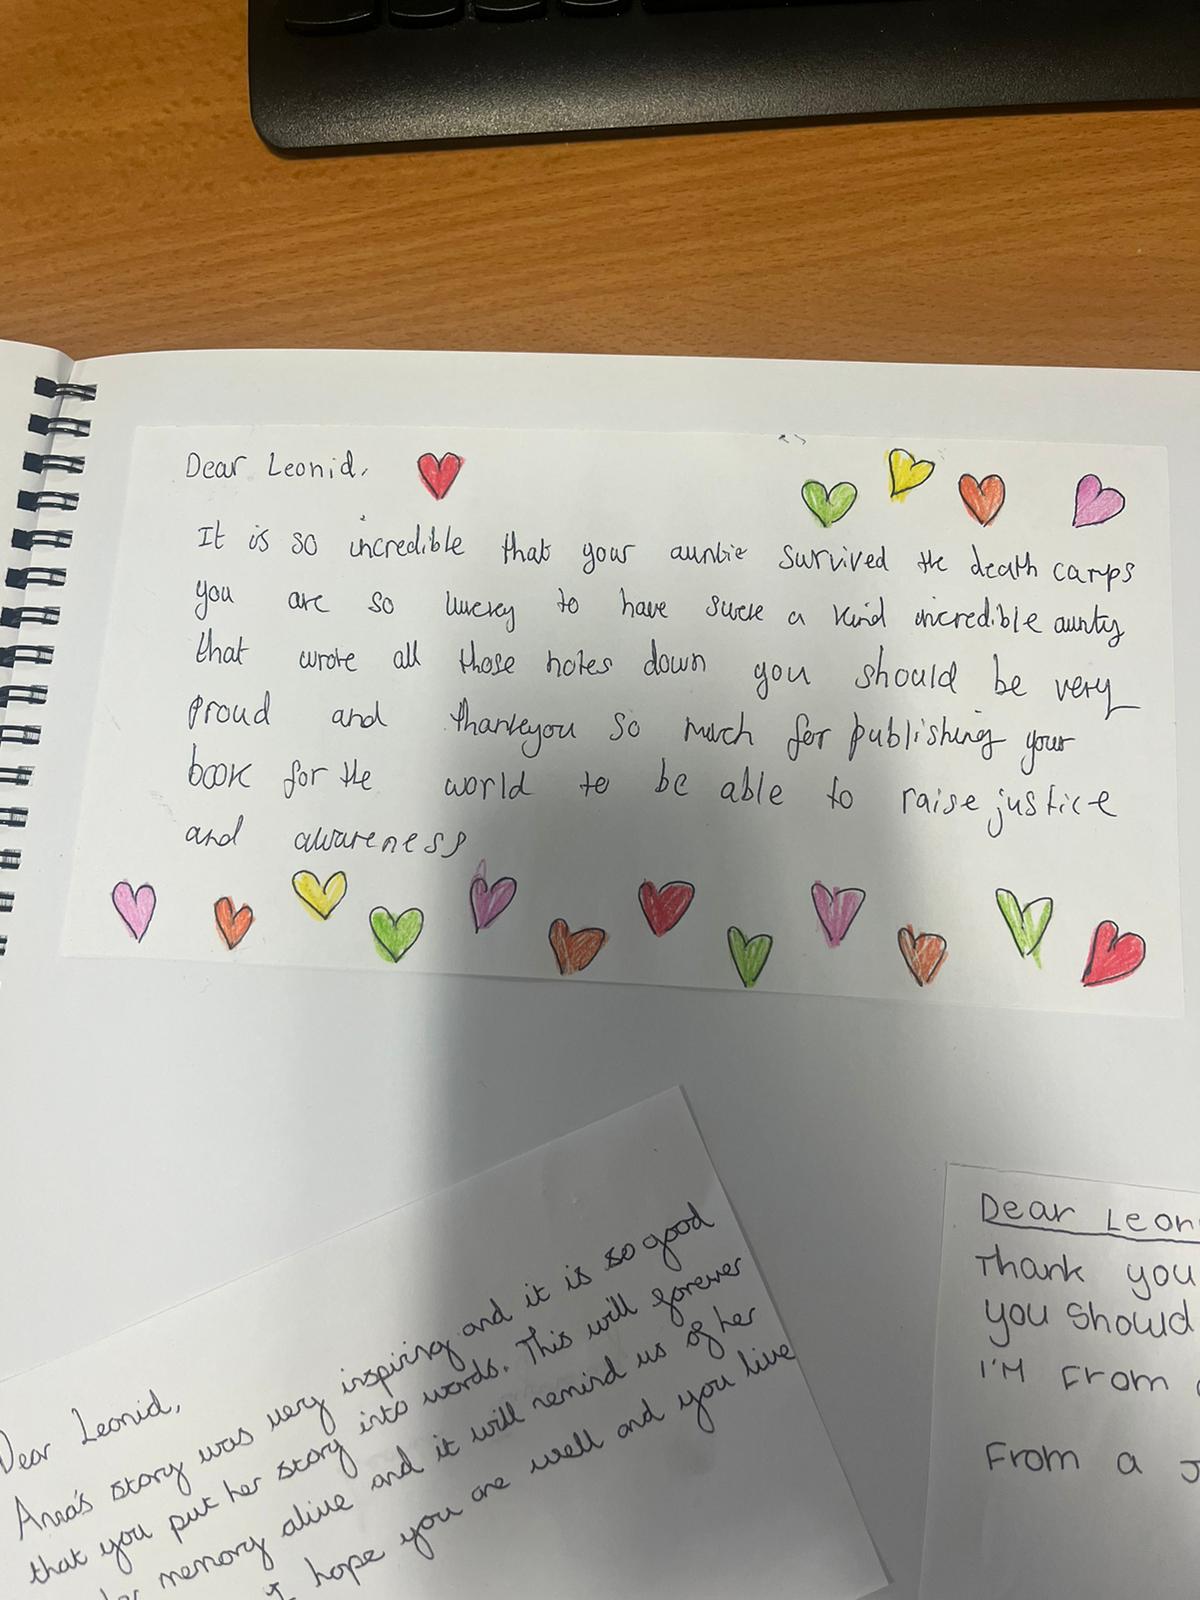 Dear Leonid,
It is so incredible that your auntie survived the death camps
you are so luckey to have such a kind incredible aunty
that wrote all those notes down you should be very
proud and thankyou so much for publishing your
book for the world to be able to raise justice
and awareness
Dear Leonid,
Anna's story was very inspiring and it is so good
that you put her story into words. This will forever
memory alive and it will remind us of her
I hope you are well and you live
Dear Leon
Thank you
you should
I'M From
From a J